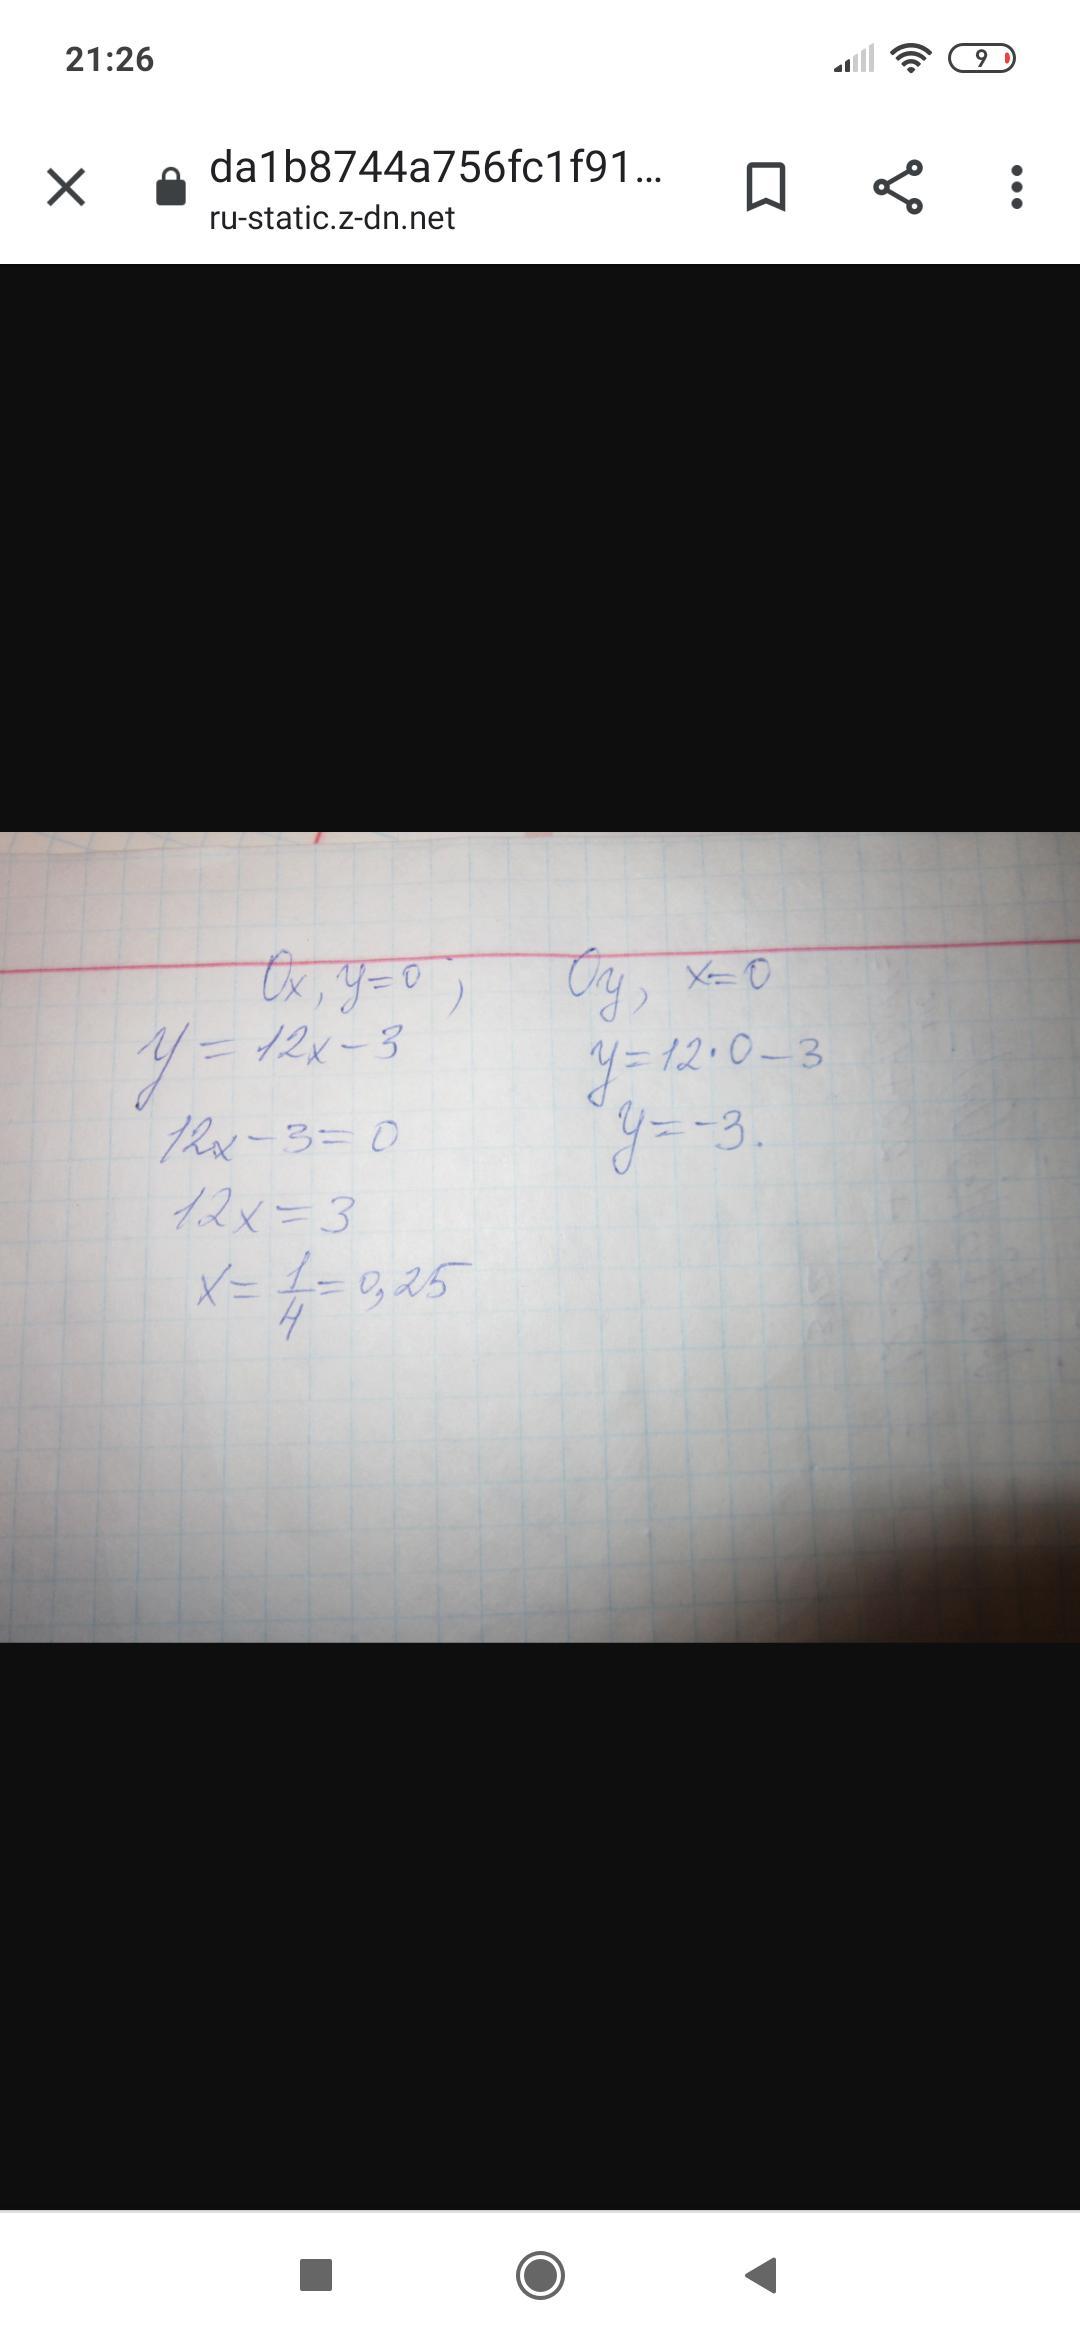 21:26
9
da1b8744a756fc1f91...
ru-static.z-dn.net
Ox, y=0;
y = 12x-3
12x-3=0
12x=3
x= 1/4 = 0,25
Oy, x=0
y=12·0-3
y=-3.